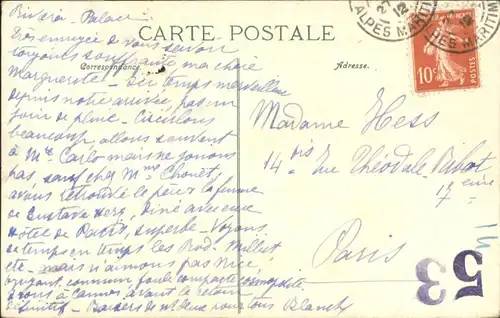 Riviera-Palace
CARTE POSTALE
Correspondance.
Adresse.
ALPES MARITIMES
10c
POSTES
Désennuyée de vous savoir
toujours souffrante ma chère
Marguerite — Ici temps merveilleux
depuis notre arrivée, pas un
jour de pluie — Circulons
beaucoup, allons souvent
à Mte Carlo mais ne jouons
pas sauf chez Mme Chonet,
avons retrouvé le père & la femme
de Gustave Herz, dîné avec eux
Hôtel de Paris, superbe — Voyons
de temps en temps les Rod.
etc — mais n'aimons pas Nice,
bruyant, commun foule compacte cosmopolite
à Cannes avant le retour
définitif — Baisers de nl deux pour tous Blanche
Madame Hess
14 bis rue Théodule Ribot
17 ème
Paris
41
53